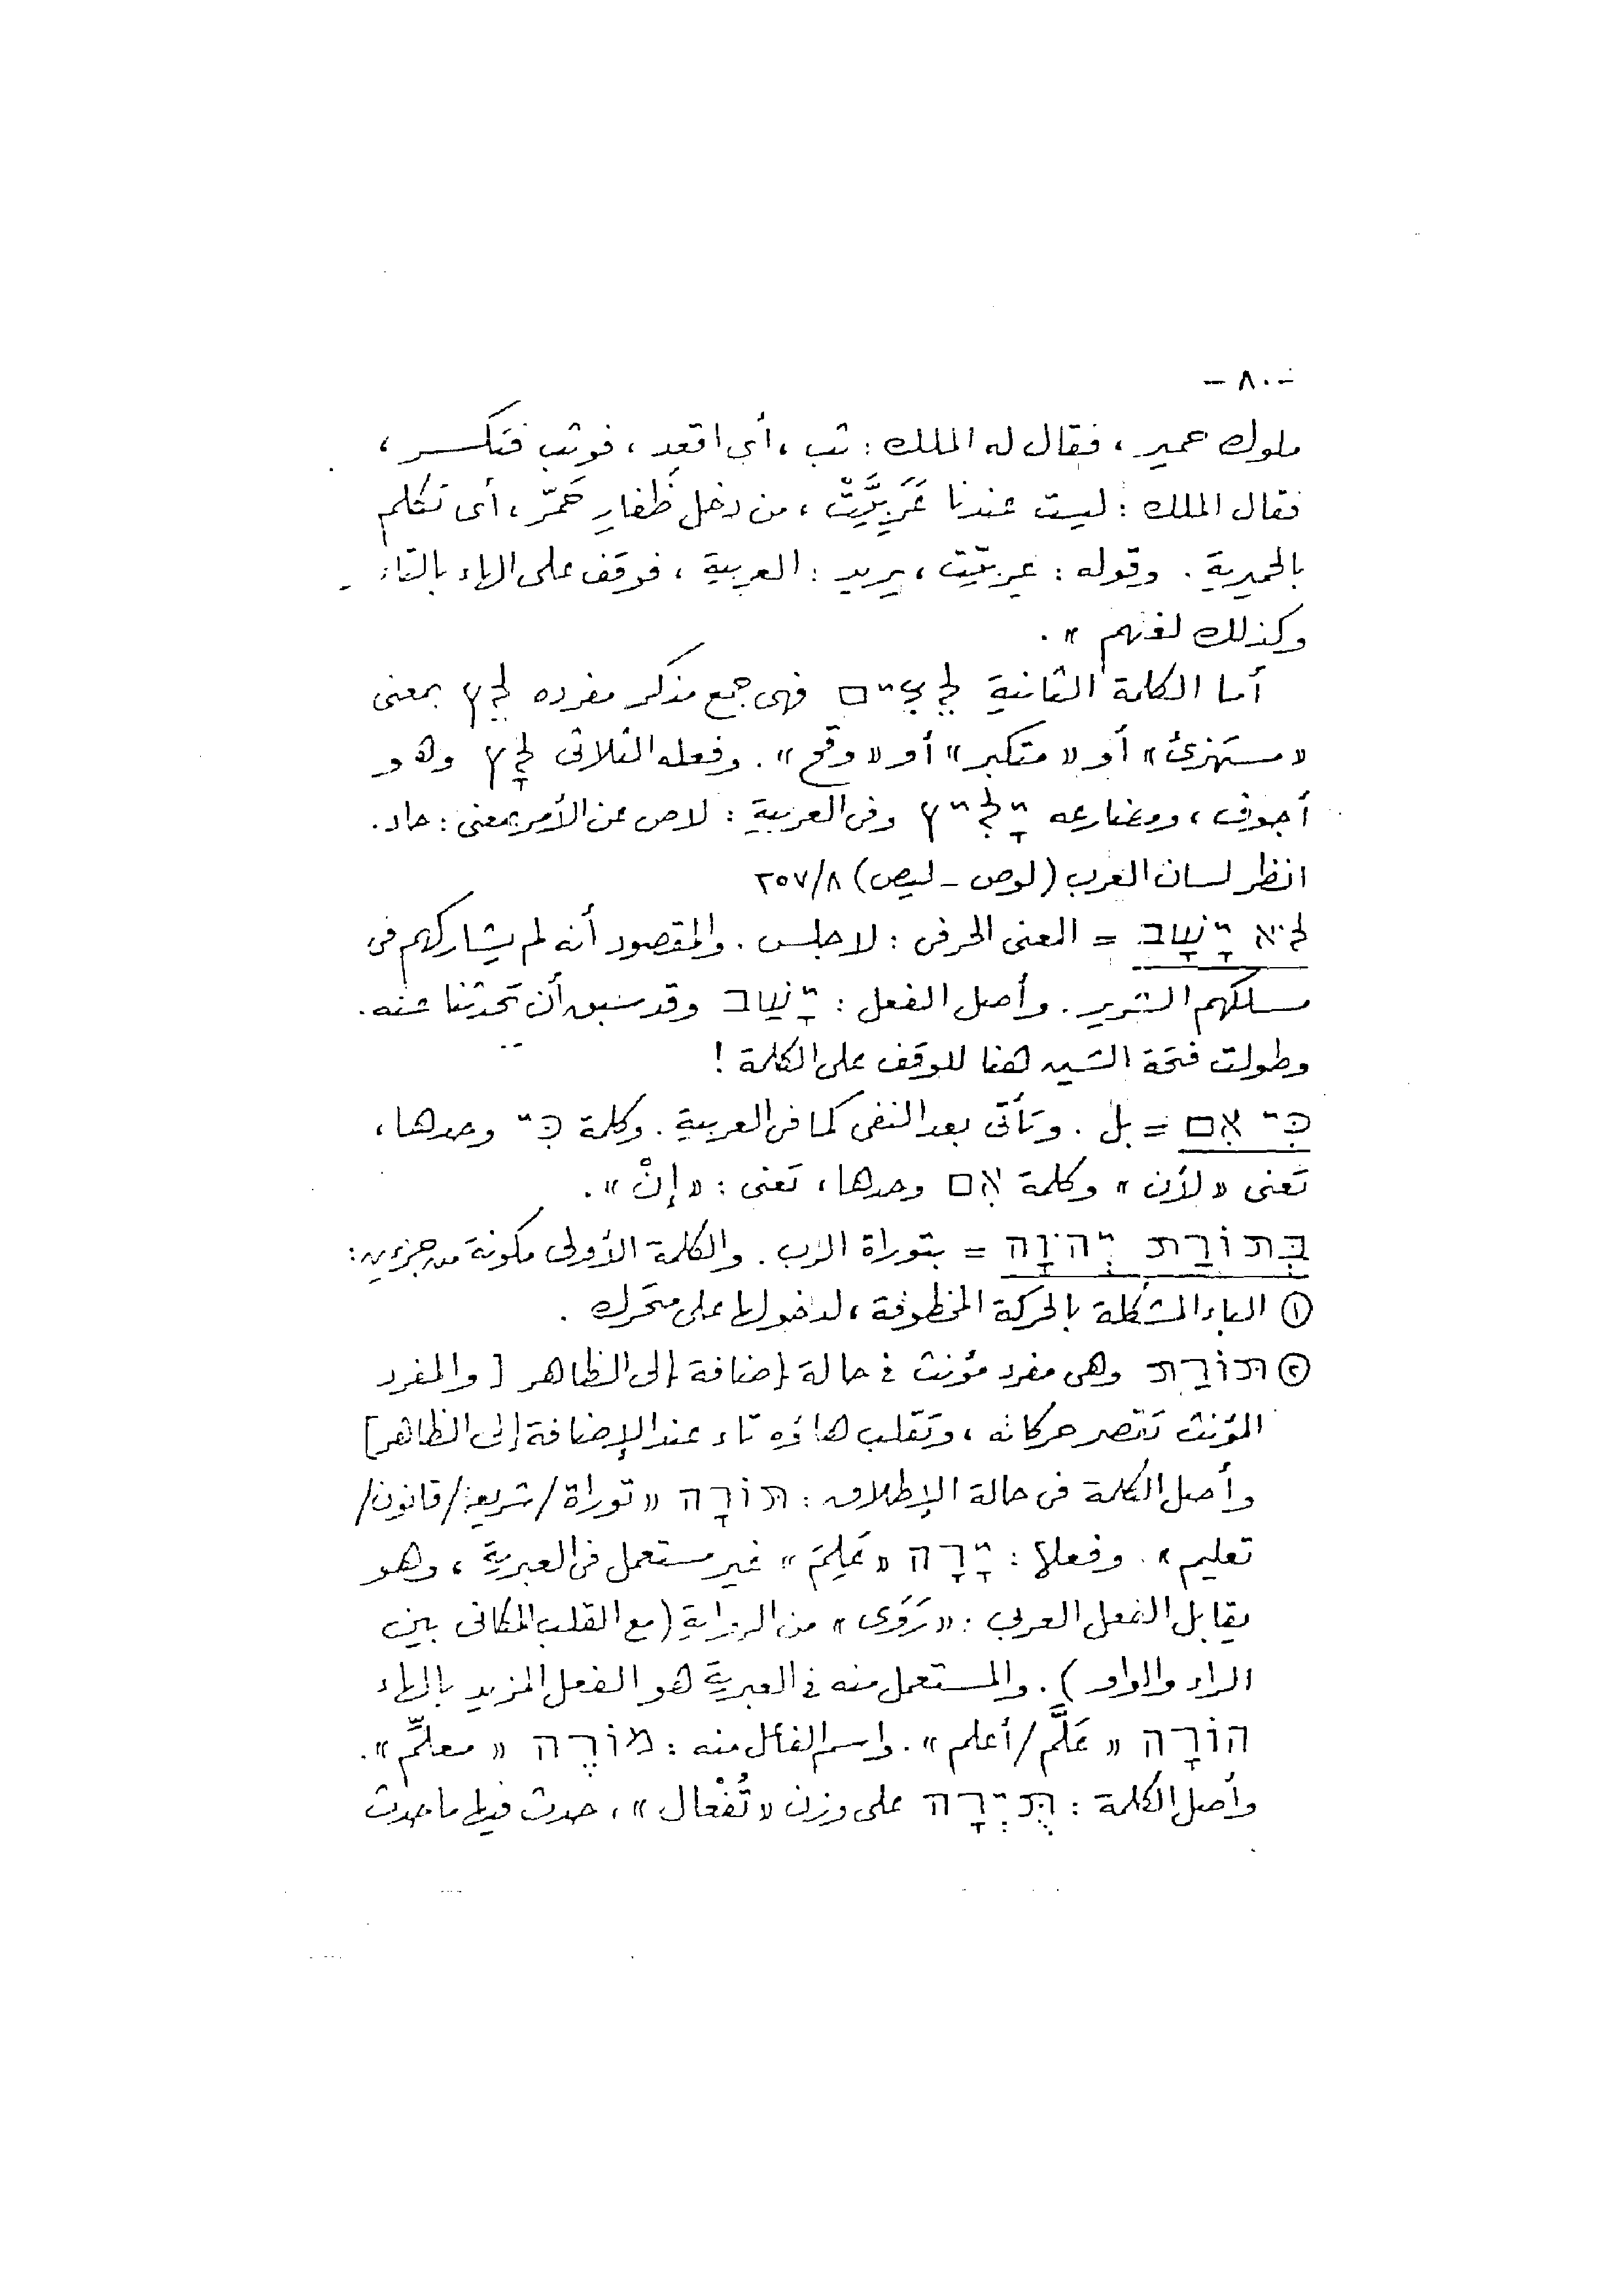 - ٨٠ -
ملوك حمير ، فقال له الملك : ثب ، أى اقعد ، فوثب فتكسر ،
فقال الملك : ليست عندنا عَرَبِيَّتْ ، من دخل ظَفارِ حَمَّر ، أى تكلم
بالحميرية . وقوله : عربيّت ، يريد : العربية ، فوقف على الهاء بالتاء .
وكذلك لغتهم » .
أما الكلمة الثانية לֵצִים فهى جمع مذكر مفرده לֵץ بمعنى
« مستهزئ » أو « متكبر » أو « وقح » . وفعله الثلاثى לָץ وهو
أجوف ، ومضارعه יָלִיץ وفى العربية : لاص عن الأمر بمعنى : حاد .
انظر لسان العرب (لوص - ليص) ٨/٢٥٧
לֹא יָשָׁב = المعنى الحرفى : لا جلس . والمقصود أنه لم يشاركهم فى
مسلكهم الشرير . وأصل الفعل : יָשַׁב وقد سبق أن تحدثنا عنه .
وطولت فتحة الشين هنا للوقف على الكلمة !
כִּי אִם = بل . وتأتى بعد النفى كما فى العربية . وكلمة כִּי وحدها ،
تعنى « لأن » وكلمة אִם وحدها ، تعنى : « إنْ » .
בְּתוֹרַת יְהוָֹה = بتوراة الرب . والكلمة الأولى مكونة من جزءين :
① الباء المشكلة بالحركة المخطوفة ، لدخولها على متحرك .
② תוֹרַת وهى مفرد مؤنث فى حالة إضافة إلى الظاهر [ والمفرد
المؤنث تقصر حركاته ، وتقلب هاؤه تاء عند الإضافة إلى الظاهر ]
وأصل الكلمة فى حالة الإطلاق : תּוֹרָה « توراة / شريعة / قانون /
تعليم » . وفعلها : יָרָה « عَلِمَ » غير مستعمل فى العبرية ، وهو
يقابل الفعل العربى : « رَوَى » من الرواية (مع القلب المكانى بين
الراء والواو ) . والمستعمل منه فى العبرية هو الفعل المزيد بالهاء
הוֹרָה « عَلَّم / أعلم » . واسم الفاعل منه : מוֹרֶה « معلِّم » .
وأصل الكلمة : תֻּיְרָה على وزن « تُفْعال » ، حدث فيها ما حدث